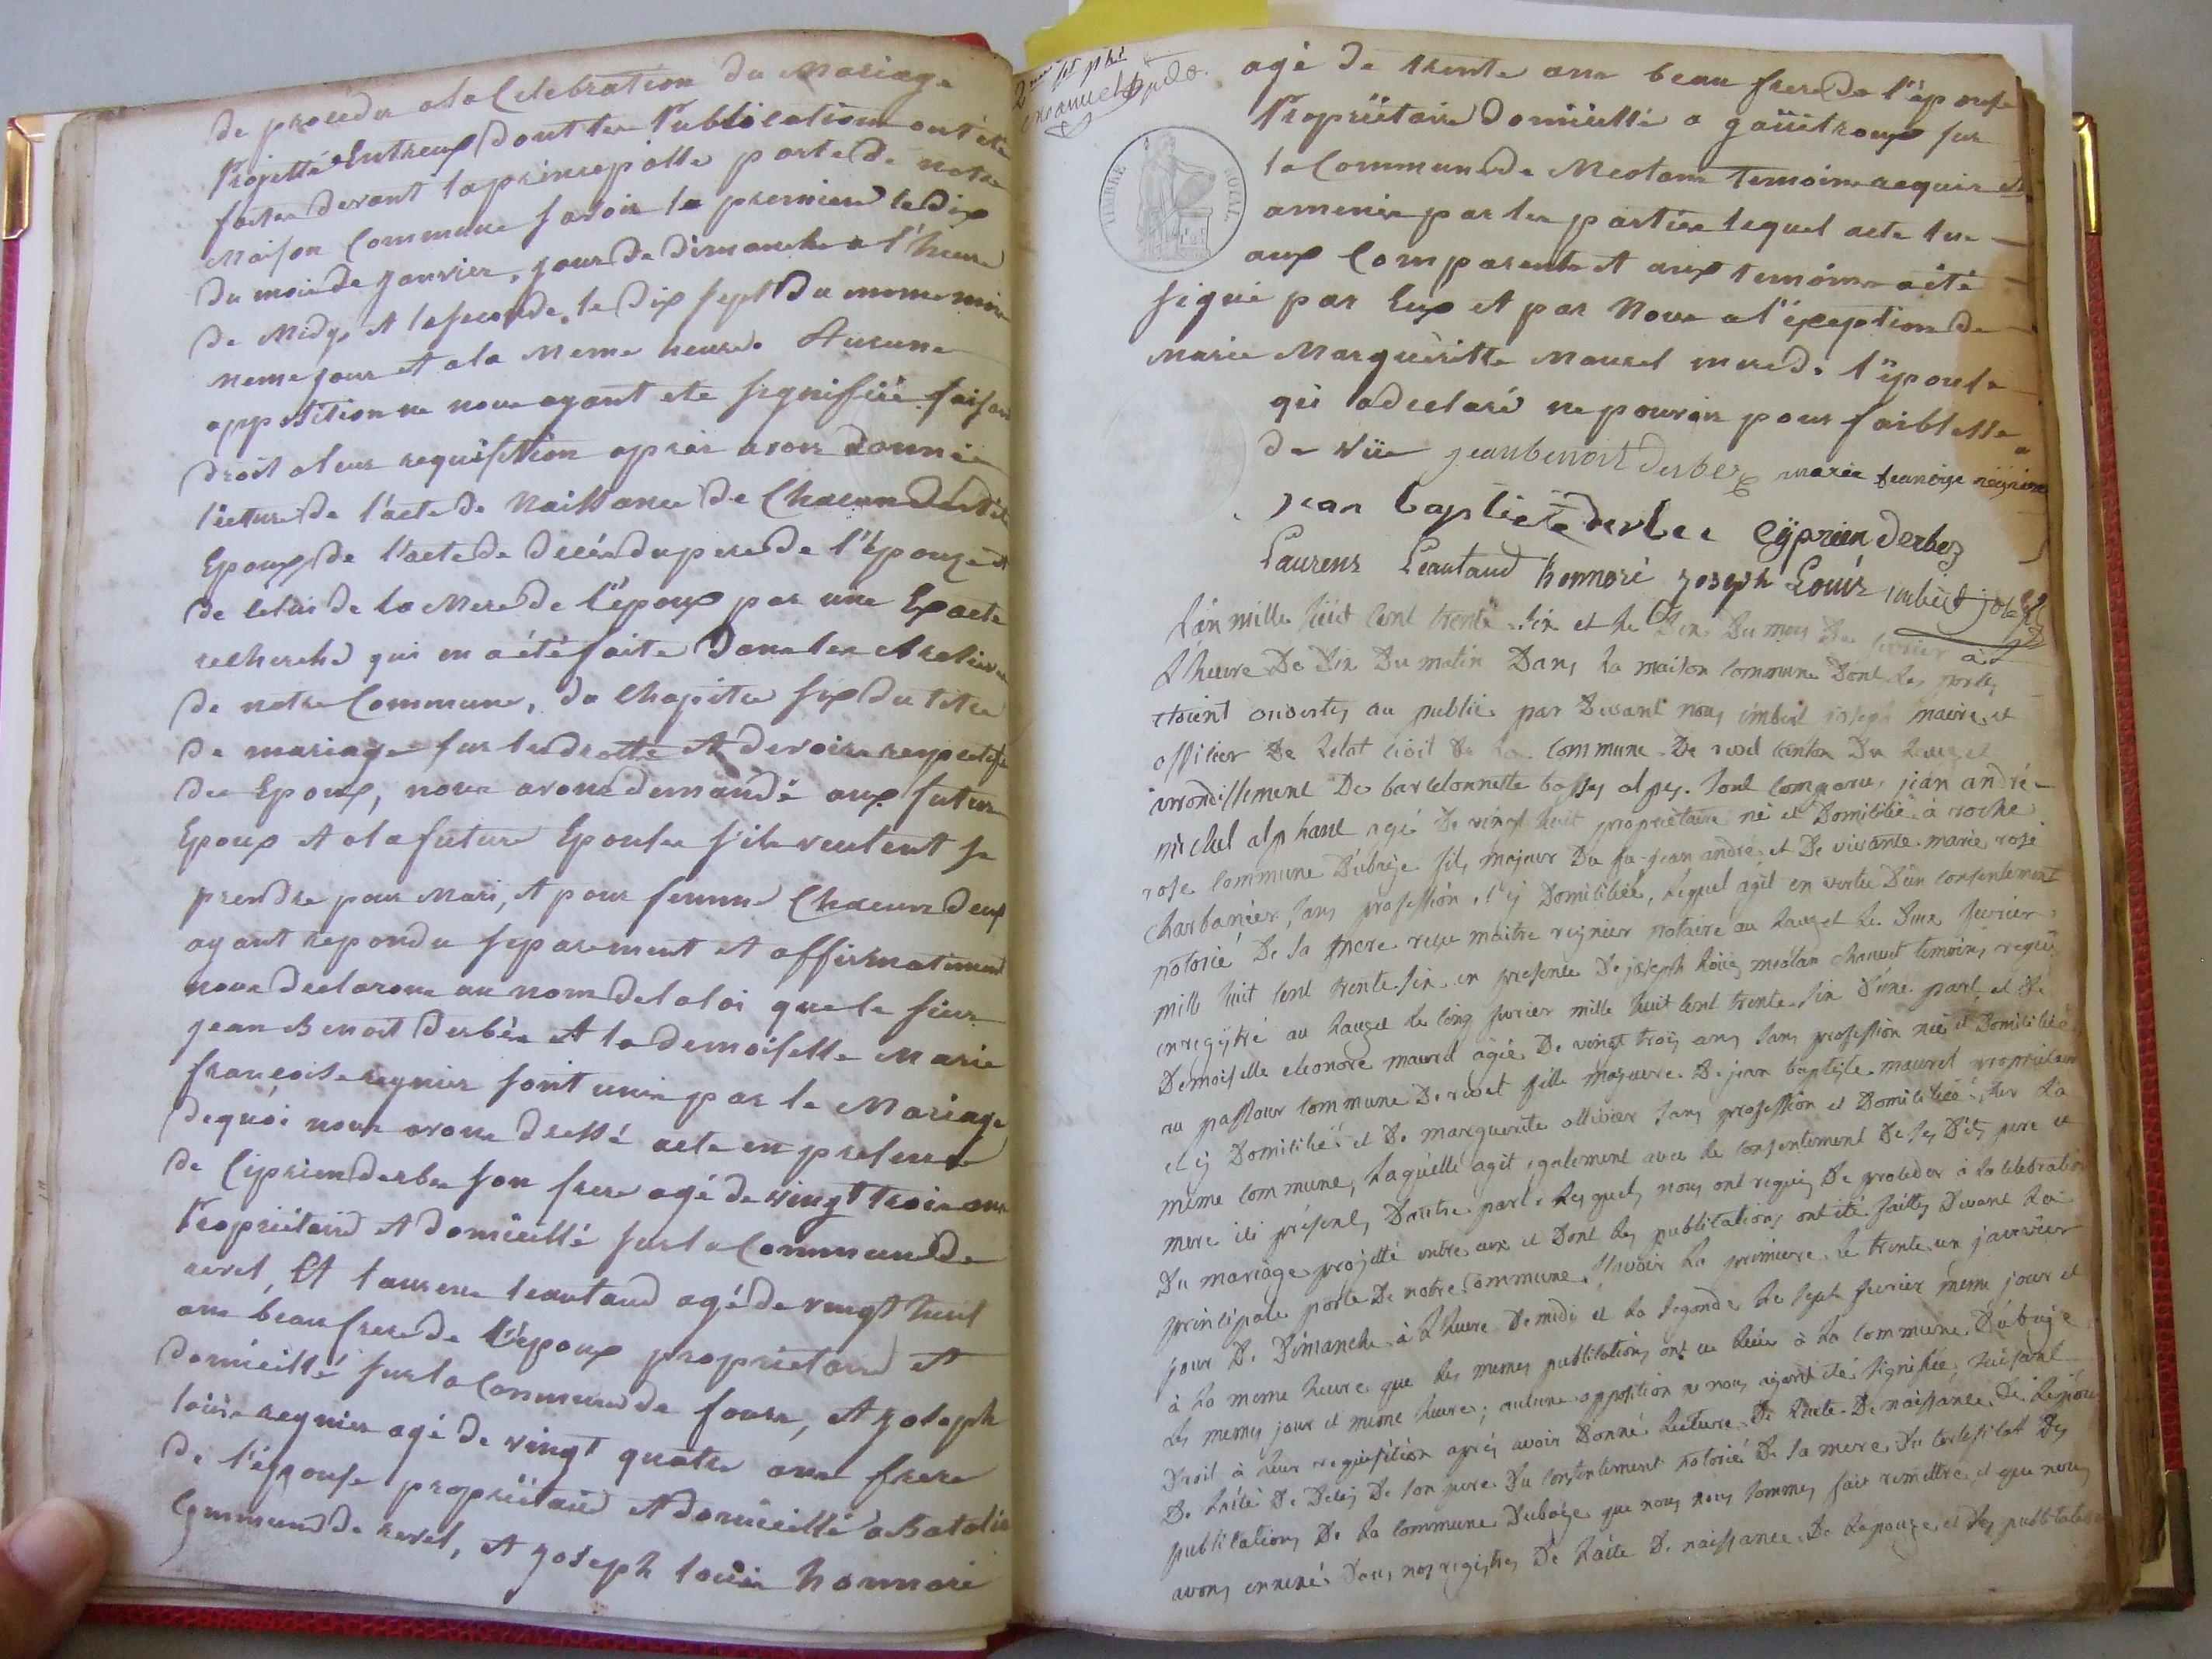 de proceder a la Celebration du Mariage
Projetté Entreux dont les Publications ont été
faites devant la principalle porte de notre
Maison Commune savoir la premiere le dix
du mois de janvier, jour de dimanche a l'heure
de Midy, et la seconde, le dix sept du meme mois
meme jour et a la meme heure. Aucune
opposition ne nous ayant ete signifiée faisant
droit a leur requisition apres avoir donnée
lecture de l'acte de Naissance de Chacun desdits
Epoux, de l'acte de deces du pere de l'Epouze et
de celui de la Mere de l'époux par une Exacte
recherche qui en a été faite dans les Archives
de notre Commune, du Chapitre six du titre
de mariage sur les droits et devoirs respectifs
des Epoux, nous avons demandé aux futur
Epoux et a la future Epouse s'ils veulent se
prendre pour Mari, et pour femme Chacun deux
ayant repondu separement et affirmativement
nous declarons au nom de la loi que le sieur
jean Benoit derbès et la demoiselle Marie
francoise reynier sont unis par le Mariage
de quoi nous avons dressé acte en presence
de Ciprien derbes son frere agé de vingt trois ans
Proprietaire et domicillié sur la Commune de
revel, Et laurens leautaud agé de vingt huit
ans beau frere de l'époux proprietaire et
domicillié sur la Commune de fours, et joseph
louis reynier agé de vingt quatre ans frere
de l'épouse propriétaire et domicillié a
Commune de revel, et joseph louis honnoré
2me
emanuel
TIMBRE ROYAL
agé de trente ans beau frere de l'épouse
Propriétaire Domicillié a gauitroux sur
la Commune de Meolans Temoins requis et
amenés par les parties lequel acte lu
aux Comparents et aux temoins a été
signé par Eux et par Nous a l'éxeption de
Marie Margueritte Maurel mere de l'épouse
qui a declaré ne pouvoir pour faiblesse
de vüe jean benoit derbez marie
jean baptiste derbes Cÿprien derbez
Laurens Leautaud honnoré joseph Louis imbert joseph
L'an mille huit cent trente six et le dix du mois de fevrier à
l'heure de dix du matin dans la maison commune dont les portes
etoient ouvertes au public par devant nous imbert joseph maire et
officier de l'etat civil de la commune de revel canton du lauzet
arrondissement de barcelonnette basses alpes. sont comparu, jean andré
michel alphand agé de vingt huit propriétaire né et domicilié à roche
rose commune d'ubaye fils majeur du fu jean andré et de vivante marie rose
charbonier sans profession, y domiciliée, lequel agit en vertu d'un consentement
notorié de sa mere reçu maitre reynier notaire au lauzet le fevrier
mille huit cent trente six en presence de joseph meolan temoins requis
enregistré au lauzet le cinq fevrier mille huit cent trente six d'une part, et de
Demoiselle eleonore maurel agée de vingt trois ans sans profession née et domiciliée
au passour commune de revel fille majeure de jean baptiste maurel propriétaire
et y domicilié et de marguerite ollivier sans profession et domiciliée sur la
meme commune, laquelle agit egalement avec le consentement de ses dits pere et
mere ici présents d'autre part. lesquels nous ont requis de proceder à la celebration
du mariage projetté entre eux et dont les publications ont été faittes devant la
principale porte de notre commune. savoir la premiere le trente un janvier
jour de dimanche à l'heure de midi et la segonde le sept fevrier meme jour et
à la meme heure que les memes publications ont eu lieu à la commune d'ubaye
les memes jour et meme heure; aucune opposition ne nous ayant été signifiée, faisant
droit à leur requisition après avoir donné lecture de l'acte de naissance de l'époux
de l'acte de décès de son pere du consentement notorié de sa mere du certificat des
publications de la commune d'ubaye que nous nous sommes fait remettre et que nous
avons annexé dans nos registres de l'acte de naissance de l'epouze, et des publications